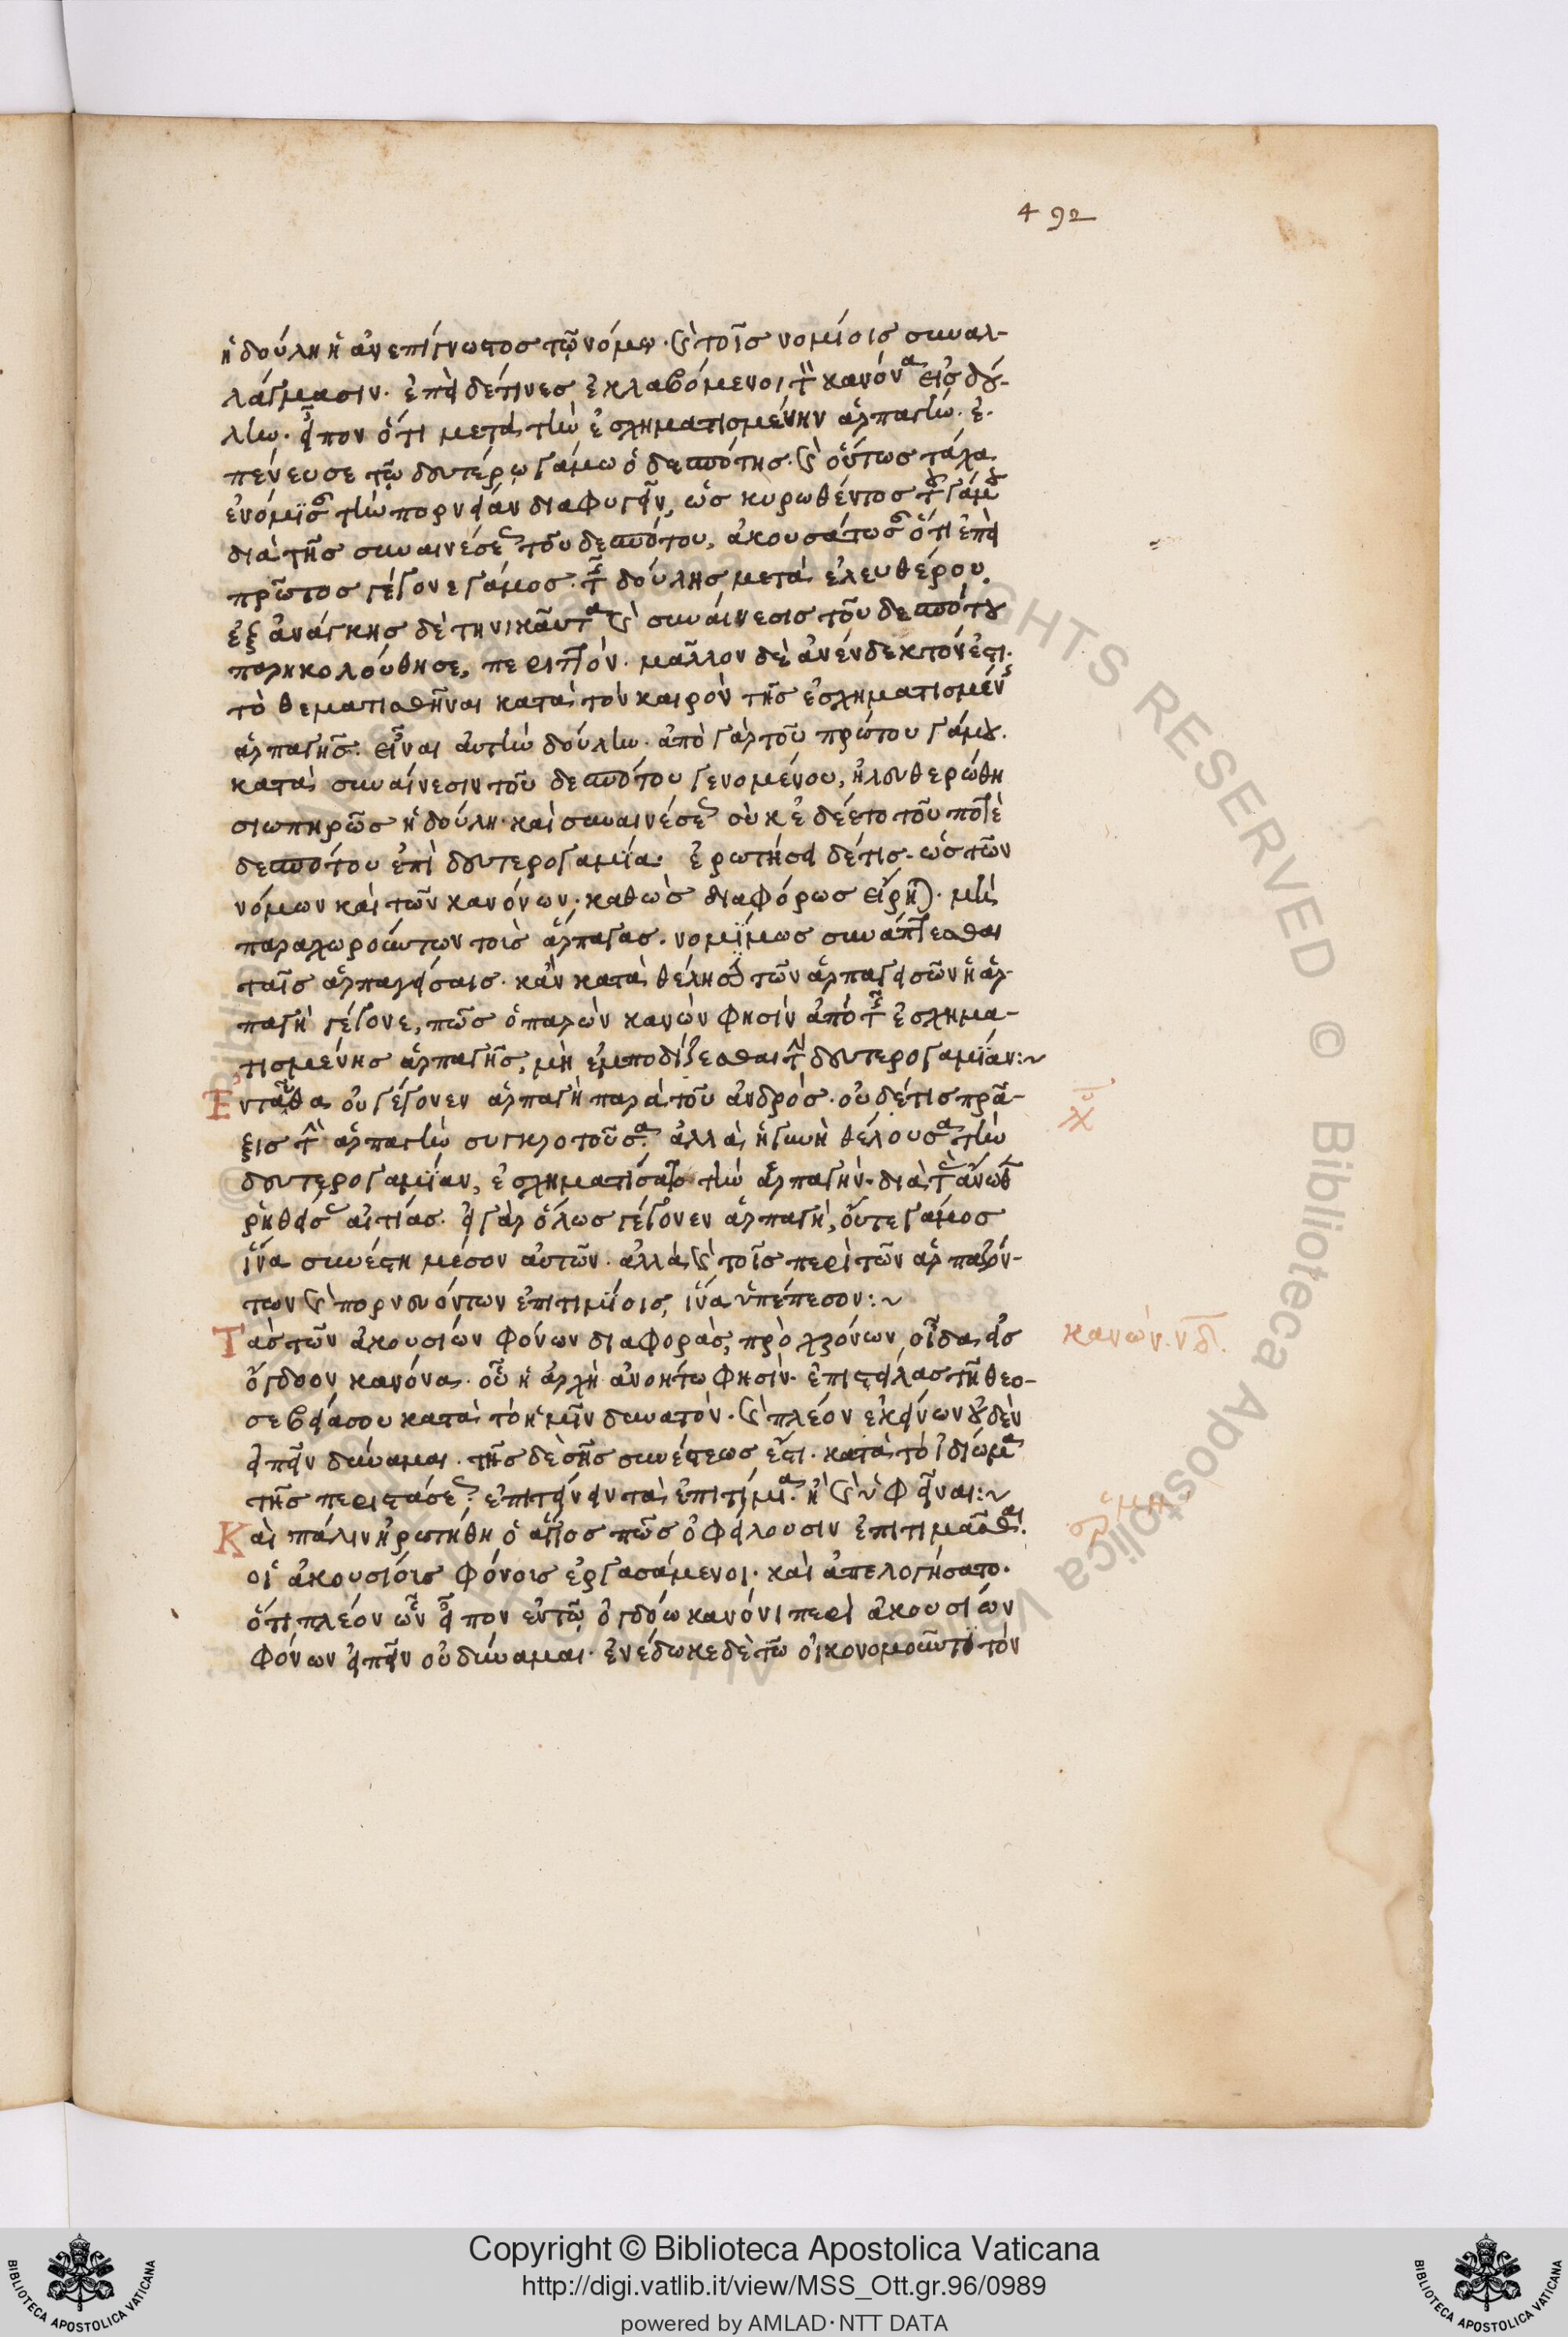 492
ἡ δούλη ἡ ἀνεπίγνωστος τῷ νόμῳ· καὶ τοῖς νομίμοις συναλ-
λάγμασιν. ἐπεὶ δέ τινες ἐκλαβόμενοι τὸν κανόνα εἰς δού-
λην. εἶπον ὅτι μετὰ τὴν ἐσχηματισμένην ἁρπαγήν. ἐ-
πένευσε τῷ δευτέρῳ γάμω ὁ δεσπότης. καὶ οὕτως τάχα
ἐνόμισαν τὴν πορνείαν διαφυγεῖν, ὡς κυρωθέντος τοῦ γάμου
διὰ τῆς συναινέσεως τοῦ δεσπότου, ἀκουσάτωσαν ὅτι ἐπεὶ
πρῶτος γέγονε γάμος τῆς δούλης μετὰ ἐλευθέρου.
ἐξ ἀνάγκης δὲ τηνικαῦτα καὶ συναίνεσις τοῦ δεσπότου
παρηκολούθησε, περιττὸν. μᾶλλον δὲ ἀνένδεκτόν ἐστι.
τὸ θεματισθῆναι κατὰ τὸν καιρὸν τῆς ἐσχηματισμένης
ἁρπαγῆς. εἶναι αὐτὴν δούλην. ἀπὸ γὰρ τοῦ πρώτου γάμου.
κατὰ συναίνεσιν τοῦ δεσπότου γενομένου, ἠλευθερώθη
σιωπηρῶς ἡ δούλη· καὶ συναινέσεως οὐκ ἐδέετο τοῦ ποτὲ
δεσπότου ἐπὶ δευτερογαμία. ἐρωτήσει δέ τις. ὡς τῶν
νόμων καὶ τῶν κανόνων· καθὼς διαφόρως εἴρηται. μὴ
παραχωρούντων τοὺς ἅρπαγας. νομίμως συνάπτεσθαι
ταῖς ἁρπαγείσαις. κἂν κατὰ θέλησιν τῶν ἁρπαγεισῶν ἡ ἁρ-
παγὴ γέγονε, πῶς ὁ παρὼν κανὼν φησὶν ἀπὸ τῆς ἐσχημα-
τισμένης ἁρπαγῆς, μὴ ἐμποδίζεσθαι τὴν δευτερογαμίαν:~
Ἐνταῦθα οὐ γέγονεν ἁρπαγὴ παρὰ τοῦ ἀνδρός. οὐδέ τις πρᾶ-
ξις τὴν ἁρπαγὴν συγκροτοῦσα. ἀλλὰ ἡ γυνὴ θέλουσα τὴν
δευτερογαμίαν, ἐσχηματίσατο τὴν ἁρπαγήν. διὰ τὰς ἄνωθεν
ῥηθείσας αἰτίας. εἰ γὰρ ὅλως γέγονεν ἁρπαγὴ, οὔτε γάμος
ἵνα συνέστη μέσον αὐτῶν. ἀλλὰ καὶ τοῖς περὶ τῶν ἁρπαζόν-
των καὶ πορνευόντων ἐπιτιμίοις, ἵνα ὑπέπεσον:~
Τὰς τῶν ἀκουσίων φόνων διαφορὰς, πρὸ χρόνων οἶδα εἰς
ὄγδοον κανόνα. οὗ ἡ ἀρχὴ ἀνοήτω φησὶν. ἐπιστείλας τῇ θεο-
σεβείᾳ σου κατὰ τὸ ἡμῖν δυνατὸν. καὶ πλέον ἐκείνων οὐδὲν
εἰπεῖν δύναμαι. τῆς δὲ σῆς συνέσεως ἐστι. κατὰ τὸ ἰδίωμα
τῆς περιστάσεως ἐπιτείνειν τὰ ἐπιτίμια. ἢ καὶ ὑφεῖναι:~
Καὶ πάλιν ἠρωτήθη ὁ ἅγιος πῶς ὀφείλουσιν ἐπιτιμᾶσθαι.
οἱ ἀκουσίοις φόνοις ἐργασάμενοι. καὶ ἀπελογήσατο.
ὅτι πλέον ὧν εἶπον ἐν τῷ ὀγδόω κανόνι περὶ ἀκουσίων
φόνων εἰπεῖν οὐ δύναμαι. ἐνέδωκε δὲ τῶ οἰκονομοῦντι τὸν
κανὼν. νδ.
ἑρμη
Copyright © Biblioteca Apostolica Vaticana
http://digi.vatlib.it/view/MSS_Ott.gr.96/0989
powered by AMLAD·NTT DATA